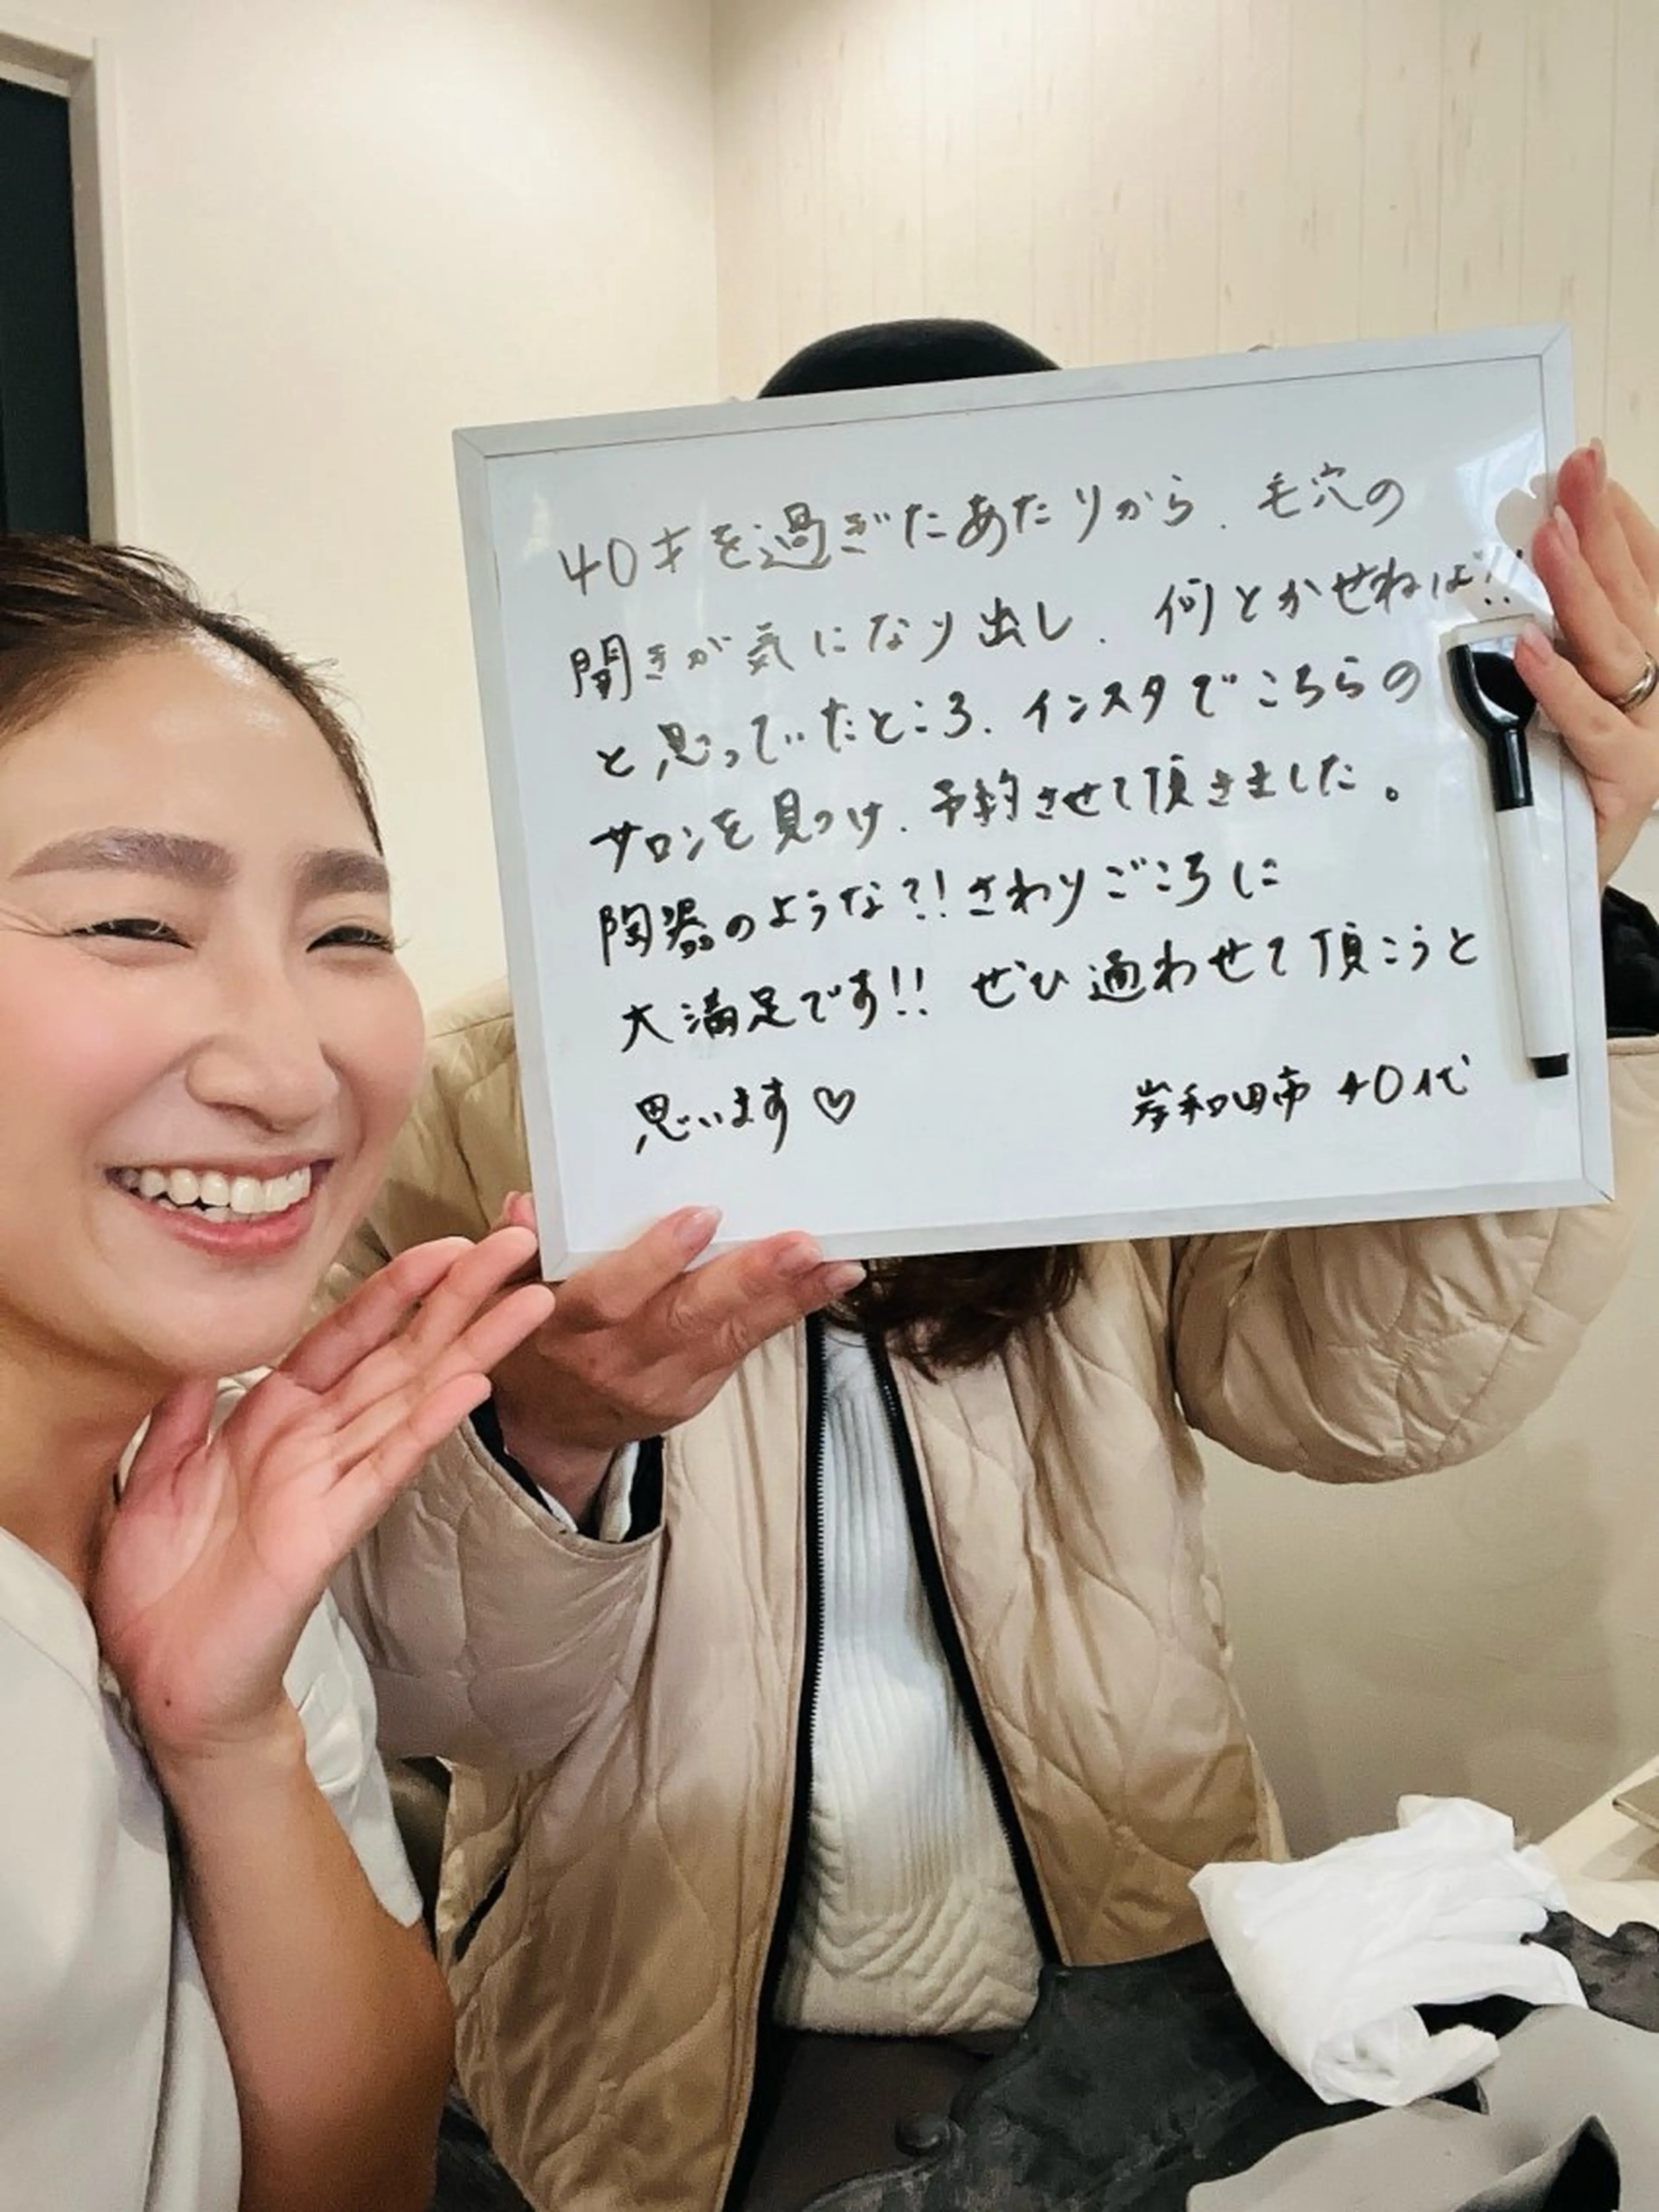 40才を過ぎたあたりから、毛穴の
開きが気になり出し、何とかせねば!!
と思っていたところ、インスタでこちらの
サロンを見つけ、予約させて頂きました。
陶器のような?!さわりごこちに
大満足です!! ぜひ通わせて頂こうと
思います♡
岸和田市 40代